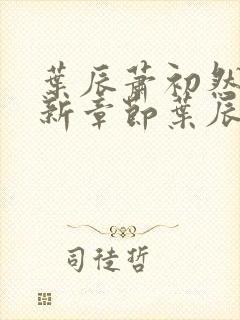 葉辰蕭初然
新章節葉辰
司徒哲